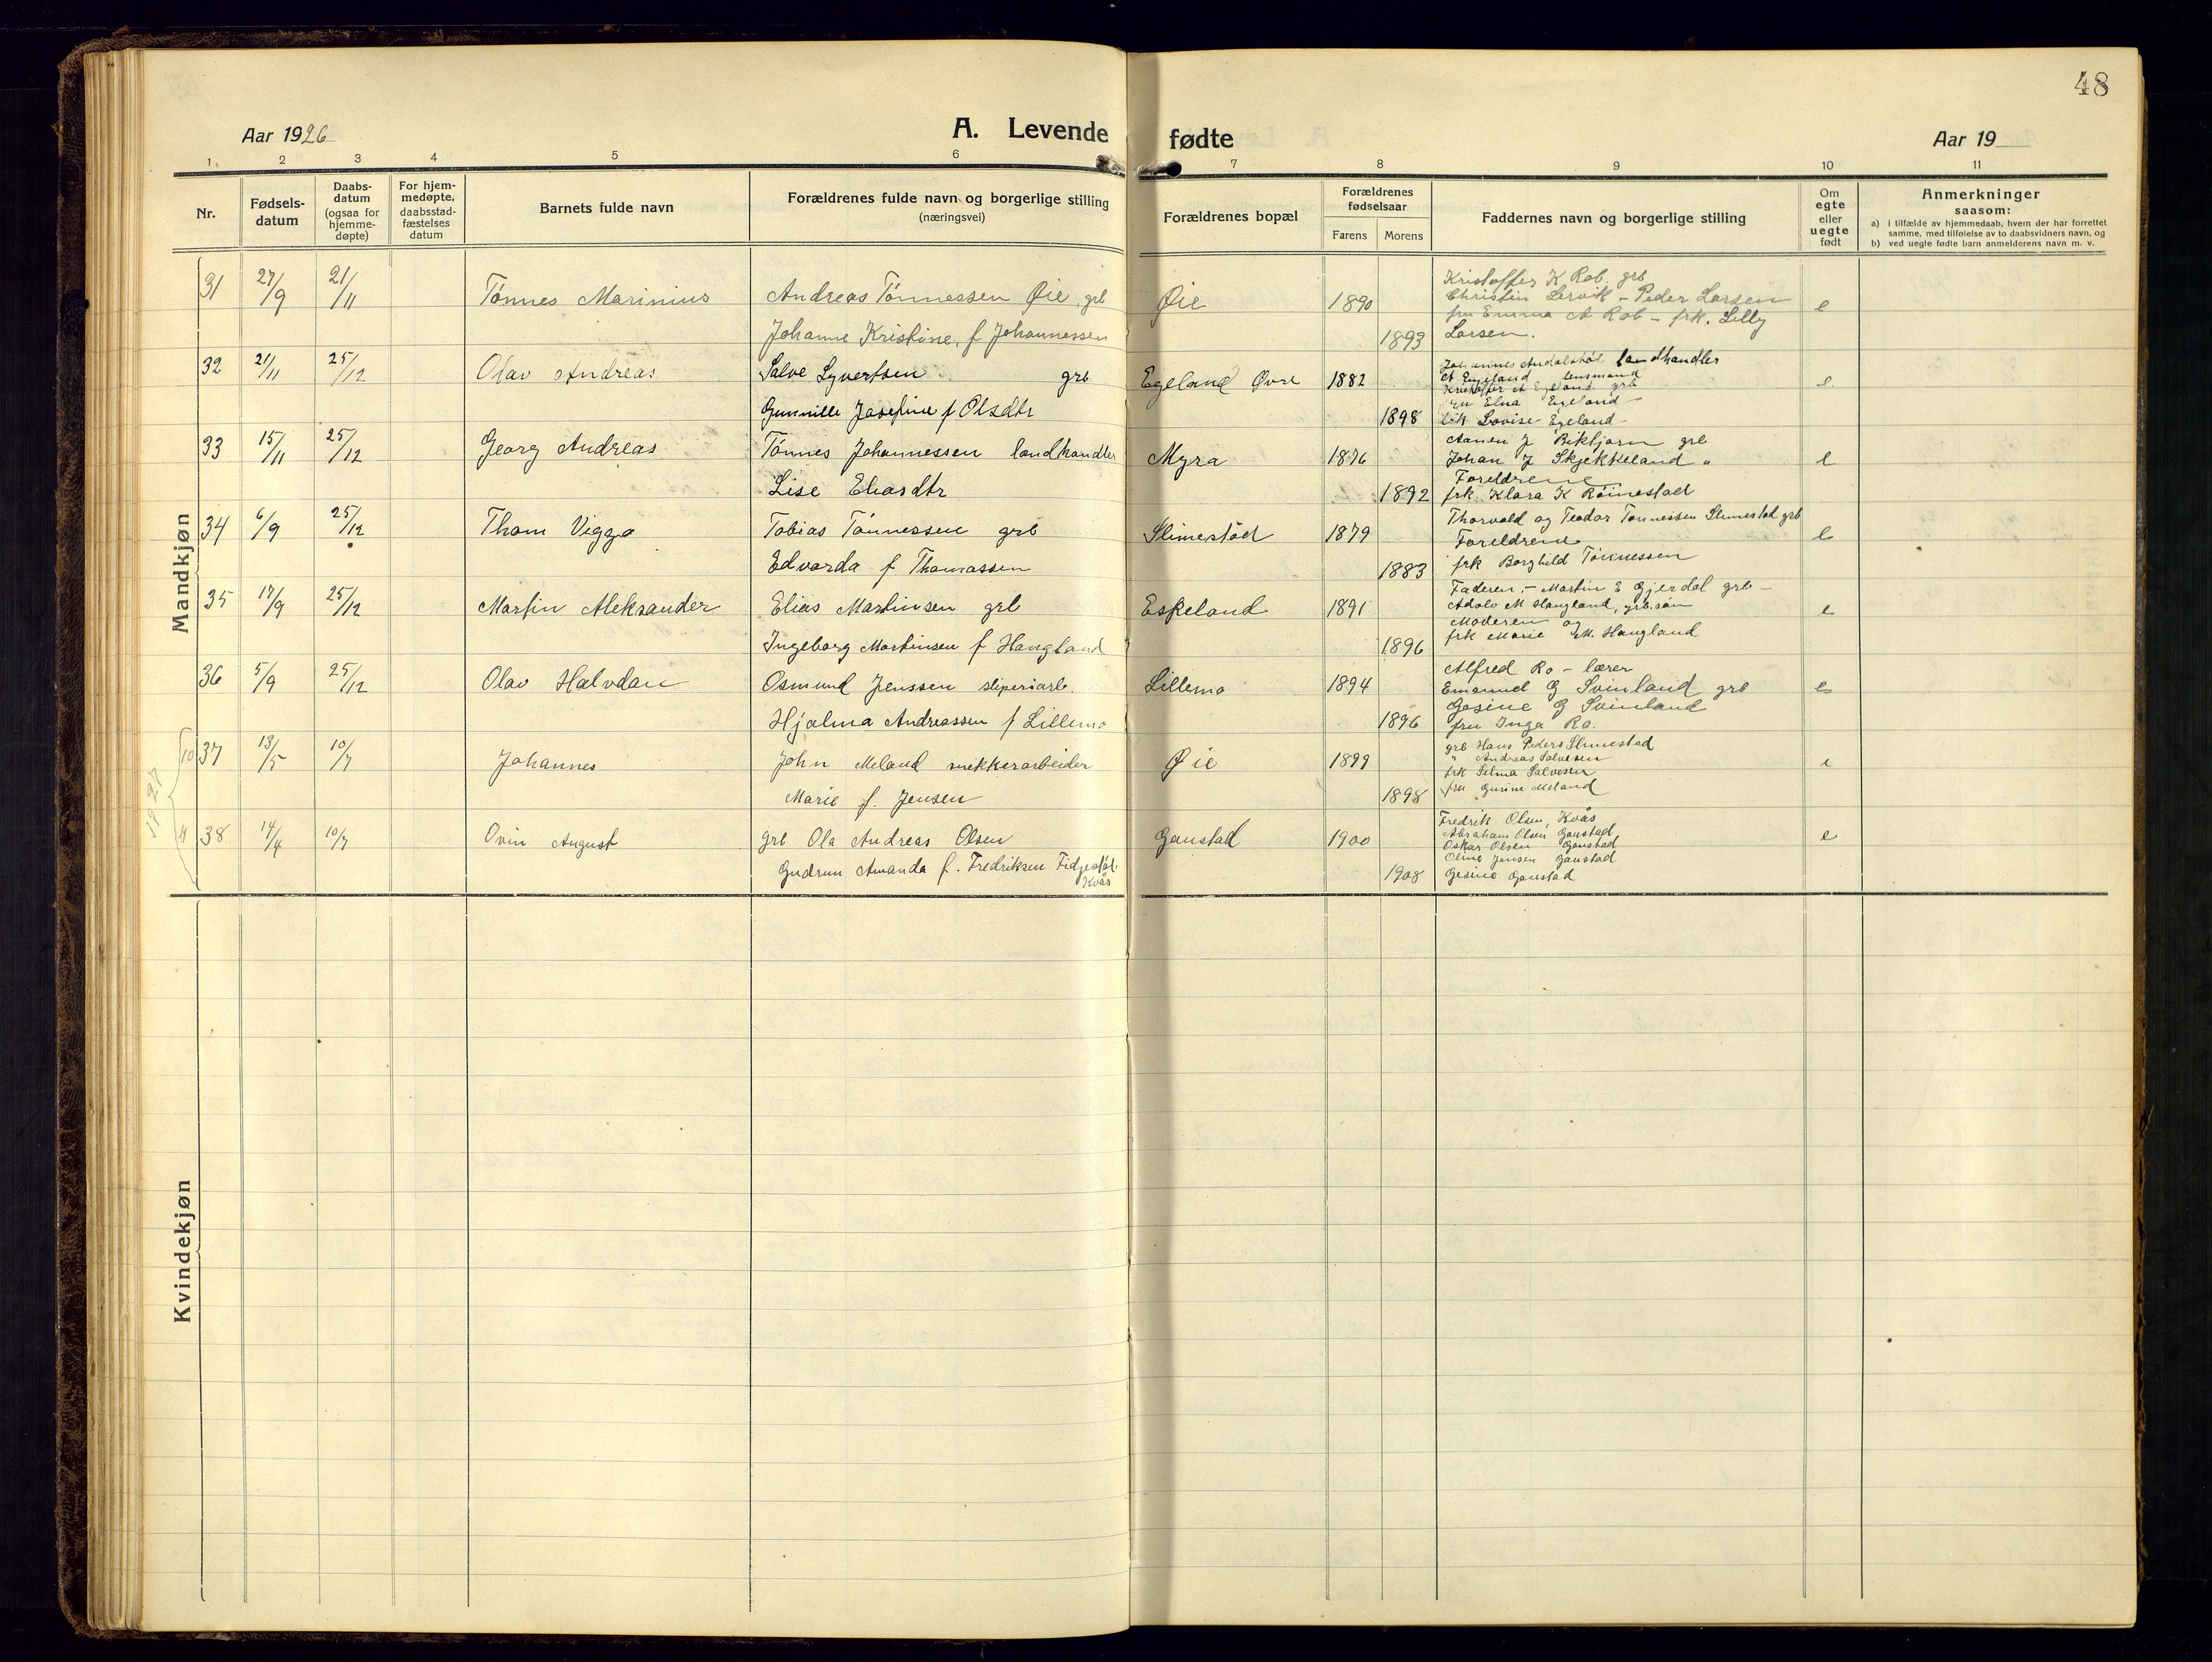 48
Aar 1926
A. Levende fødte
Aar 19
1 2 3 4 5 6 7 8 9 10 11
Nr.
Fødsels-
datum
Daabs-
datum
(ogsaa for
hjemme-
døpte)
For hjem-
medøpte,
daabsstad-
fæstelses
datum
Barnets fulde navn
Forældrenes fulde navn og borgerlige stilling
(næringsvei)
Forældrenes bopæl
Forældrenes
fødselsaar
Farens Morens
Faddernes navn og borgerlige stilling
Om
egte
eller
uegte
født
Anmerkninger
saasom:
a) i tilfælde av hjemmedaab, hvem der har forrettet
samme, med tilføielse av to daabsvidners navn, og
b) ved uegte fødte barn anmelderens navn m. v.
Mandkjøn
31 27/9 21/11 Tönnes Marinius Andreas Tönnessen Øie, grb Øie 1890 e
Johanne Kristine, f Johannessen 1893
Kristoffer K Rob. grb
Christin Lervik - Peder Larsen
fru Emma A Rob - frk. Lilly
Larsen.
32 21/11 25/12 Olav Andreas Salve Syvertsen grb Egeland Øvre 1882 e
Gunnille Josefine f Olsdtr 1898
Johannes landhandler
A Egeland lensmand
Kristoffer A Egeland grb
fru Elna Egeland
Lovise Egeland
33 15/11 25/12 Georg Andreas Tönnes Johannessen landhandler Myra 1876 e
Lise Eliasdtr 1892
Aanen J Birkljorn grb
Johan J Skjekkeland "
Foreldrene
frk. Klara K Röinestad
34 6/9 25/12 Thom Viggo Tobias Tönnessen grb Slimestad 1879 e
Edvarda f Thomassen 1883
Thorvald og Teodor Tönnessen Slimestad grb
Foreldrene
frk Borghild Tönnessen
35 17/9 25/12 Martin Aleksander Elias Martinsen grb Eskeland 1891 e
Ingeborg Martinsen f Haugland 1896
Faderen, - Martin E Gjerdal grb -
Adolv M Haugland, grb.sön
Moderen og
frk Marie M. Haugland
36 5/9 25/12 Olav Halvdan Osmund Jenssen sliperiarb. Lillemo 1894 e
Hjalma Andreassen f Lillemo 1896
Alfred Ro - lærer
Emanuel G Svinland grb
Gesine G Svinland
fru Inga Ro.
1927
10 37 13/5 10/7 Johannes John Meland snekkerarbeider Øie 1899 e
Marie f. Jensen 1898
grb Hans Peders Slimestad
" Andreas Salvesen
frk Selma Salvesen
fru Gusine Meland
4 38 14/4 10/7 Ovin August grb Ola Andreas Olsen Gaustad 1900 e
Gudrun Amanda f. Fredriksen Fidjestøl
Kvås 1908
Fredrik Olsen, Kvås
Abraham Olsen Gaustad
Oskar Olsen Gaustad
Oline Jensen Gaustad
Gesine Gaustad
Kvindekjøn